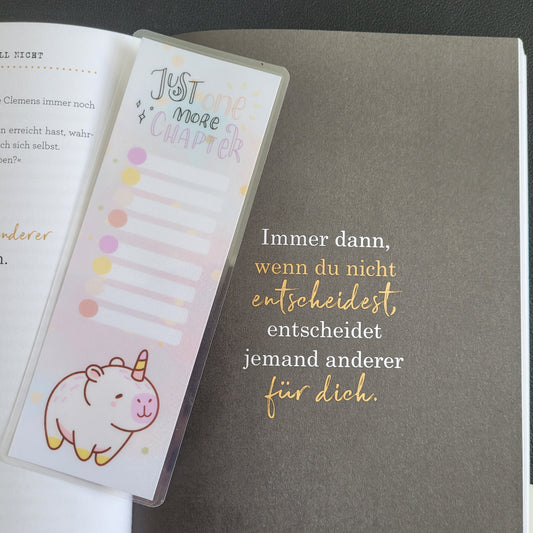 LL NICHT
e Clemens immer noch
n erreicht hast, wahr-
ch sich selbst.
ben?«
nderer
n.
JUST ONE
MORE
CHAPTER
Immer dann,
wenn du nicht
entscheidest,
entscheidet
jemand anderer
für dich.